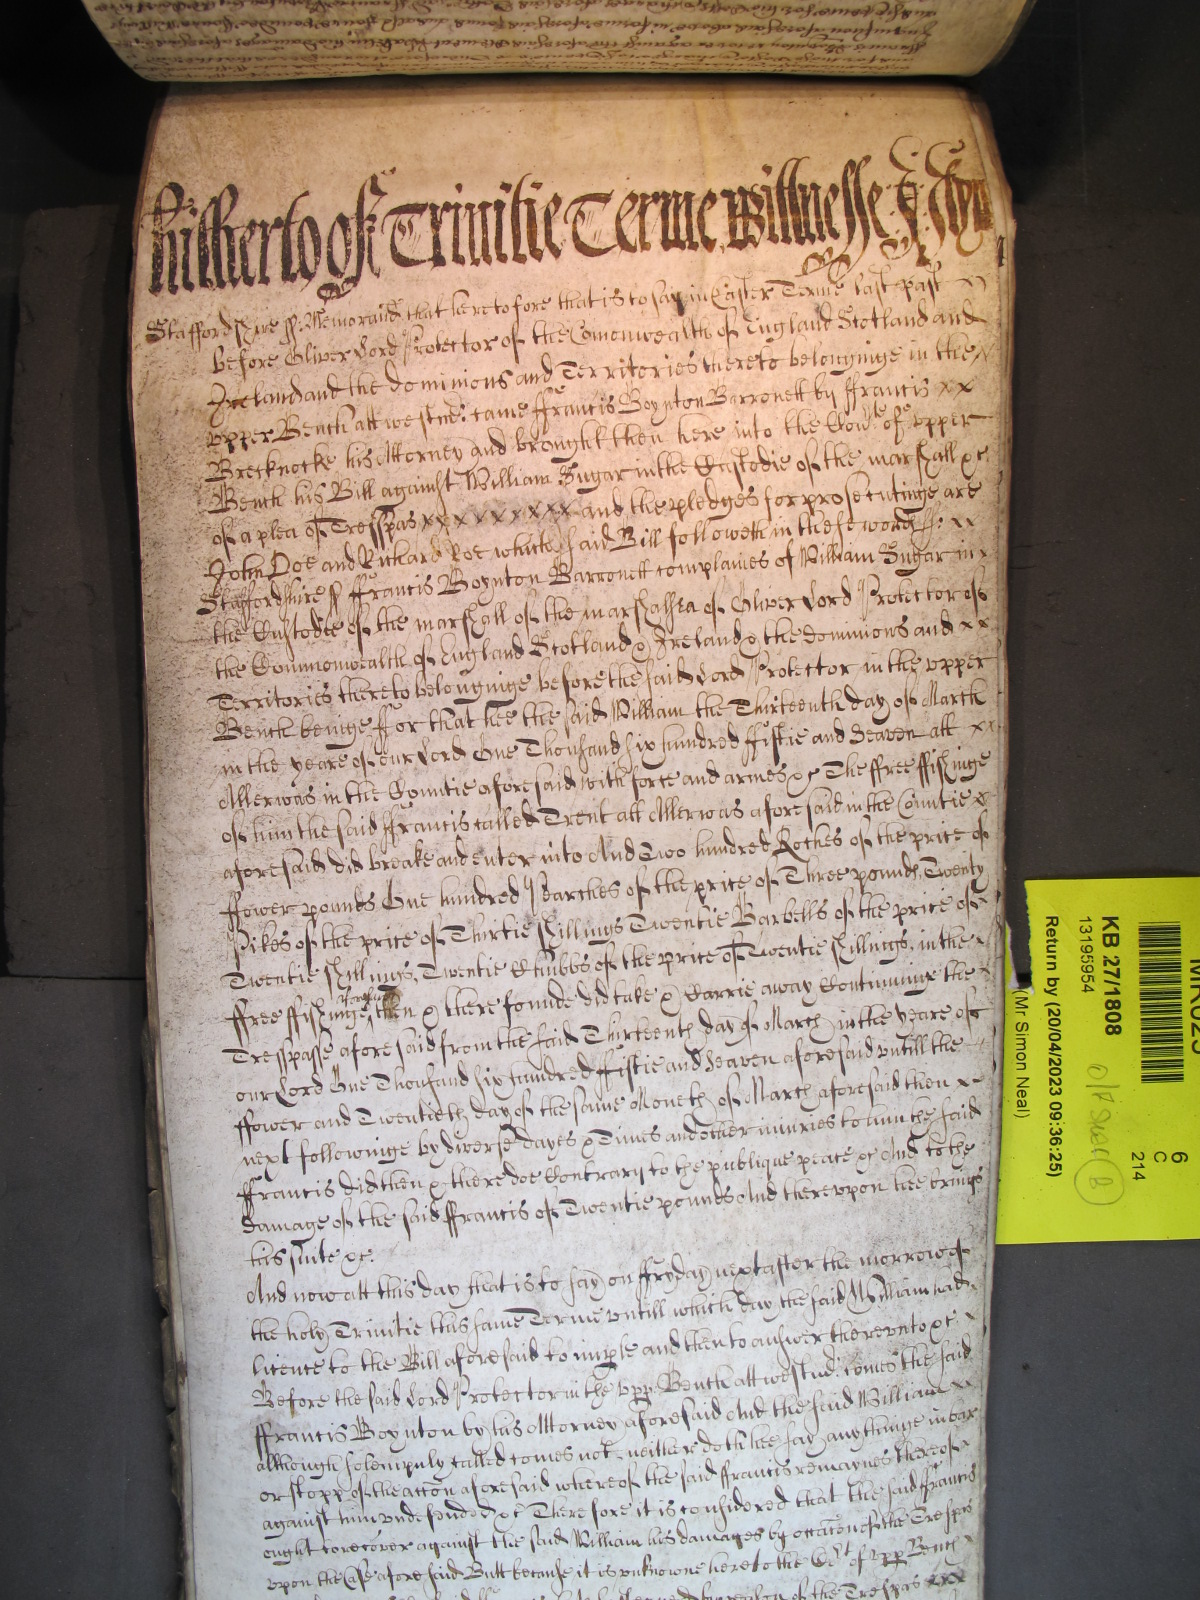 hitherto of Trinitie Terme Wittnesse
Staffordshire ss: Memorand that heretofore that is to say in Easter Terme last past
before Oliver Lord Protector of the Comonwealth of England Scotland and
Ireland and the dominions and Territories thereto belonginge in the x
upper Bench att Westmr: came ffrancis Boynton Barronett by ffrancis xx
Brecknocke his Attorney and brought then here into the Court of upper
Bench his Bill against William Sugar in the Custodie of the marshall xc
of a plea of Tresspas xxxxxxxxx and the pledges for prosecutinge are
John Doe and Richard Roe which said Bill followeth in these words ss: xx
Staffordshire ss ffrancis Boynton Barronett complaines of William Sugar in x
the Custodie of the marshall of the marshalsea of Oliver Lord Protector of
the Commonwealth of England Scotland & Ireland & the dominions and xx
Territories thereto belonginge before the said Lord Protector in the upper
Bench beinge ffor that hee the said William the Thirteenth day of March
in the yeare of our Lord One Thousand six hundred ffiftie and seaven att xx
Allerwas in the Countie aforesaid with force and armes &c The ffree ffishinge
of him the said ffrancis called Trent att Allerwas aforesaid in the Countie x
aforesaid did breake and enter into And Two hundred Roches of the price of
ffower pounds One hundred Pearches of the price of Three pounds Twenty
Pikes of the price of Thirtie shillings Twentie Barbells of the price of
Twentie shillings, Twentie Chubbs of the price of Twentie shillings, in the
ffree ffishinge aforesaid then & there founde did take & Carrie away Continuinge the
Tresspasse aforesaid from the said Thirteenth day of March in the yeare of
our Lord One Thousand six hundred ffiftie and seaven aforesaid untill the
ffower and Twentieth day of the same Moneth of March aforesaid then xx
next followinge by diverse dayes & Times and other iniuries to him the said
ffrancis did then & there doe Contrary to the publique peace &c And to the
damage of the said ffrancis of Twentie pounds And thereupon hee brings
his suite &c.
And now att this day that is to say on ffryday next after the morrow of
the holy Trinitie this same Terme untill which day the said William had
licence to the Bill aforesaid to imple and then to answer thereunto &c
Before the said Lord Protector in the upp Bench att Westmr: comes the said
ffrancis Boynton by his Attorney aforesaid And the said William xx
although solempnly called comes not neither doth hee say any thinge in bar
or stopp of the accon aforesaid whereof the said ffrancis remaynes thereof
against him undefended &c Therefore it is considered that the said ffrancis
ought to recover against the said William his damages by occacon of the Trespas
upon the Case aforesaid Butt because it is unknowne here to the Crt of upp Bench
of the Trespas xxx
KB 27/1808
13195954
Return by (20/04/2023 09:36:25)
(Mr Simon Neal)
6
C
214